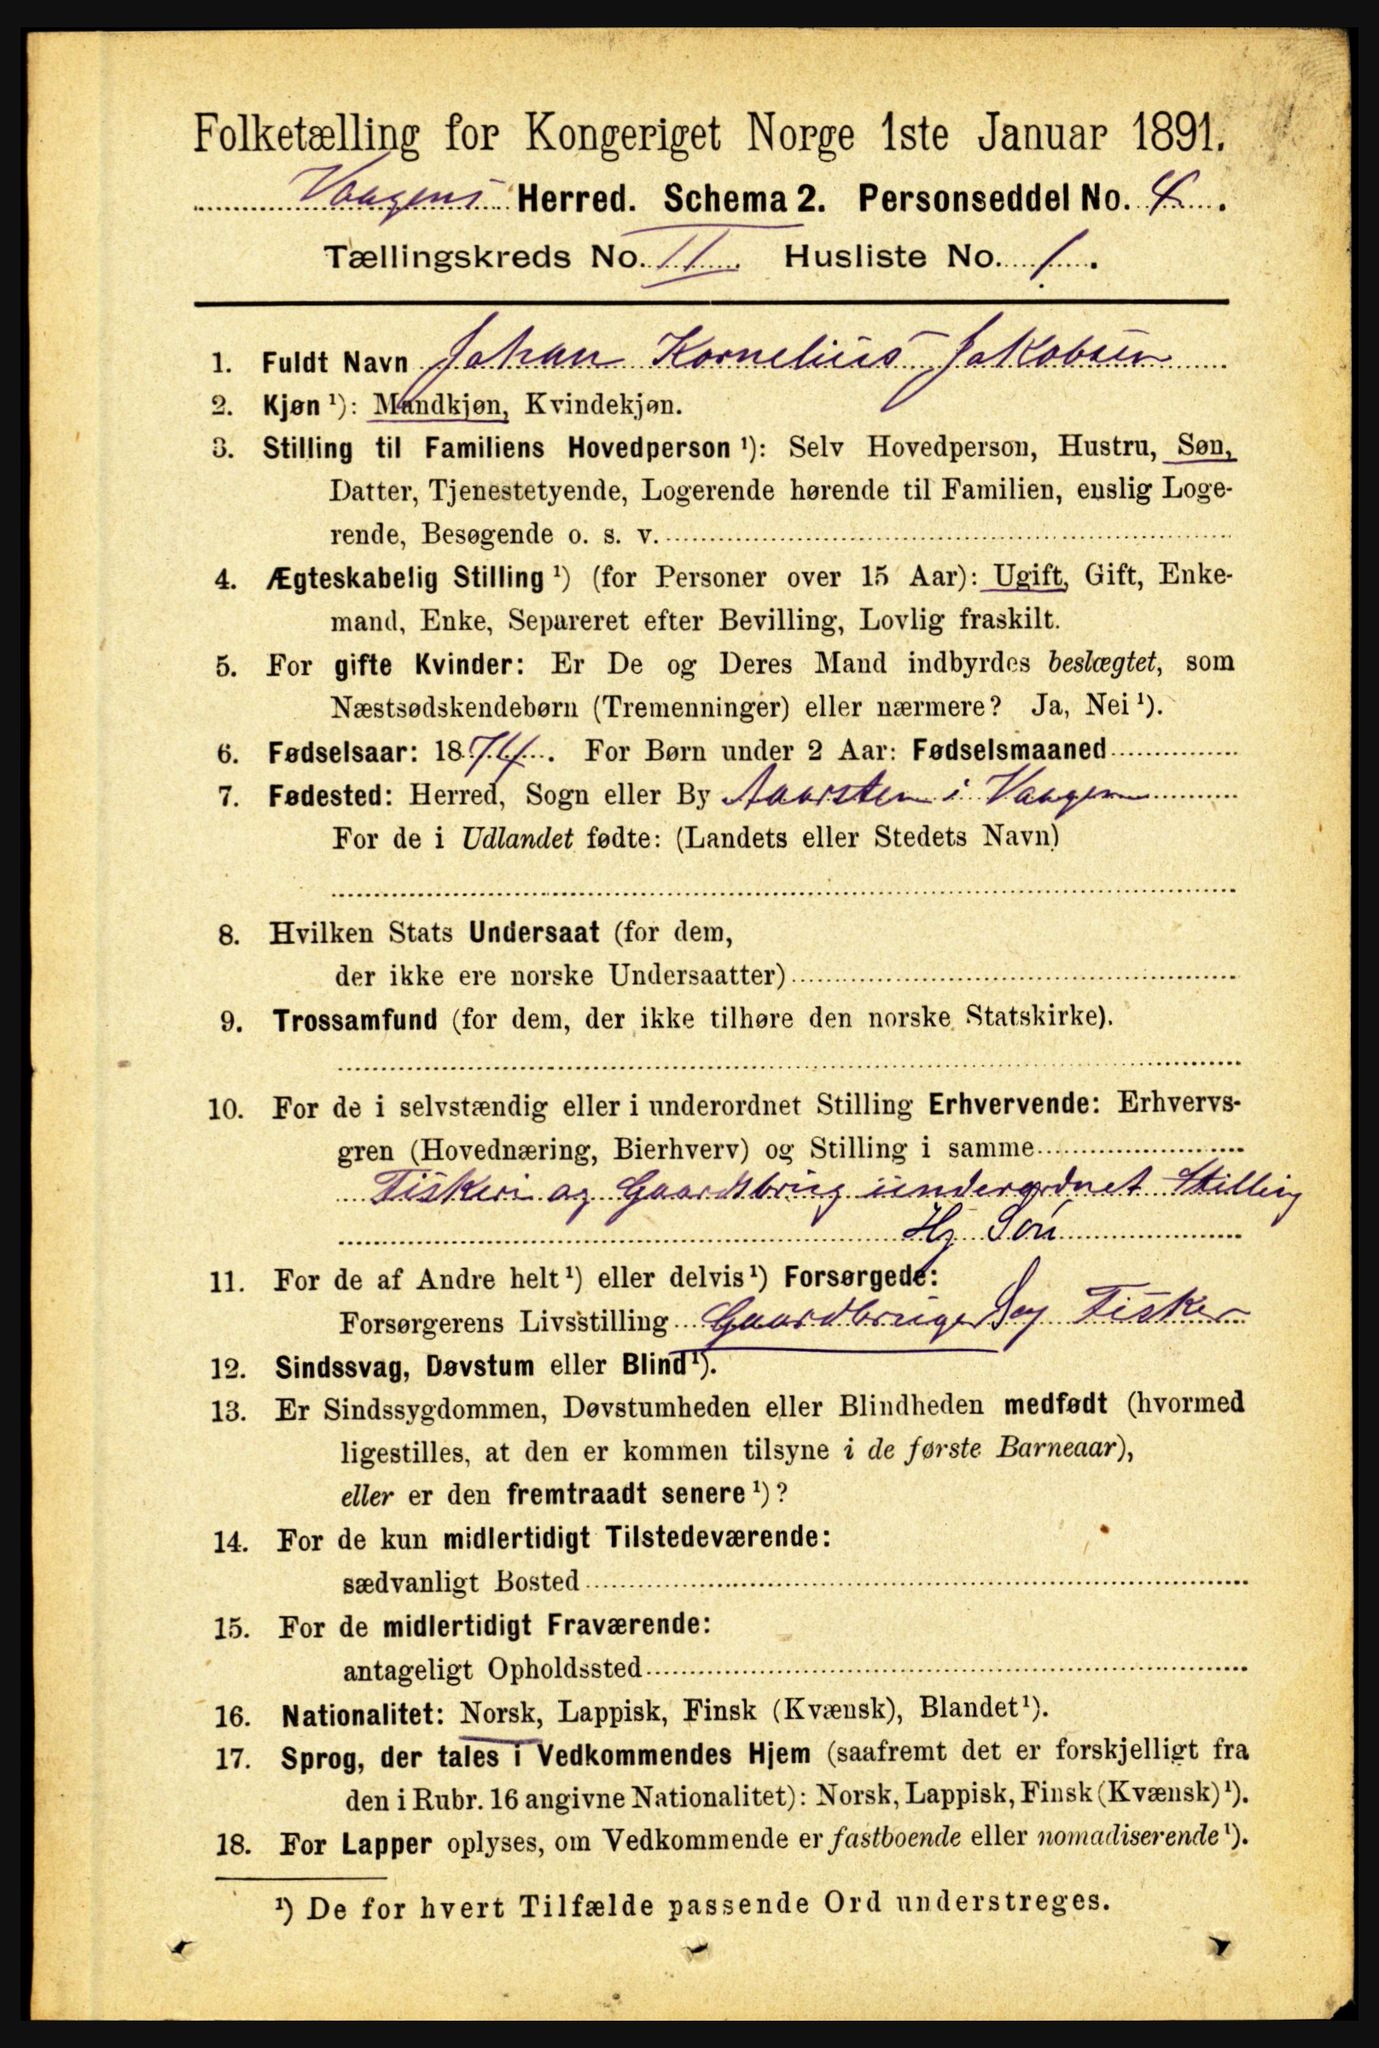 Folketælling for Kongeriget Norge 1ste Januar 1891.
Vaagens Herred. Schema 2. Personseddel No. 4.
Tællingskreds No. II. Husliste No. 1.
1. Fuldt Navn Johan Kornelius Jakobsen
2. Kjøn ¹): Mandkjøn, Kvindekjøn.
3. Stilling til Familiens Hovedperson ¹): Selv Hovedperson, Hustru, Søn,
Datter, Tjenestetyende, Logerende hørende til Familien, enslig Loge-
rende, Besøgende o. s. v.
4. Ægteskabelig Stilling ¹) (for Personer over 15 Aar): Ugift, Gift, Enke-
mand, Enke, Separeret efter Bevilling, Lovlig fraskilt.
5. For gifte Kvinder: Er De og Deres Mand indbyrdes beslægtet, som
Næstsødskendebørn (Tremenninger) eller nærmere? Ja, Nei ¹).
6. Fødselsaar: 1874. For Børn under 2 Aar: Fødselsmaaned
7. Fødested: Herred, Sogn eller By Aarsten i Vaagen
For de i Udlandet fødte: (Landets eller Stedets Navn)
8. Hvilken Stats Undersaat (for dem,
der ikke ere norske Undersaatter)
9. Trossamfund (for dem, der ikke tilhøre den norske Statskirke).
10. For de i selvstændig eller i underordnet Stilling Erhvervende: Erhvervs-
gren (Hovednæring, Bierhverv) og Stilling i samme
Fiskeri og Gaardsbrug underordnet Stilling
Hj Søn
11. For de af Andre helt ¹) eller delvis ¹) Forsørgede:
Forsørgerens Livsstilling Gaardbruger og Fisker
12. Sindssvag, Døvstum eller Blind ¹).
13. Er Sindssygdommen, Døvstumheden eller Blindheden medfødt (hvormed
ligestilles, at den er kommen tilsyne i de første Barneaar),
eller er den fremtraadt senere ¹)?
14. For de kun midlertidigt Tilstedeværende:
sædvanligt Bosted
15. For de midlertidigt Fraværende:
antageligt Opholdssted
16. Nationalitet: Norsk, Lappisk, Finsk (Kvænsk), Blandet ¹).
17. Sprog, der tales i Vedkommendes Hjem (saafremt det er forskjelligt fra
den i Rubr. 16 angivne Nationalitet): Norsk, Lappisk, Finsk (Kvænsk) ¹).
18. For Lapper oplyses, om Vedkommende er fastboende eller nomadiserende ¹).
¹) De for hvert Tilfælde passende Ord understreges.